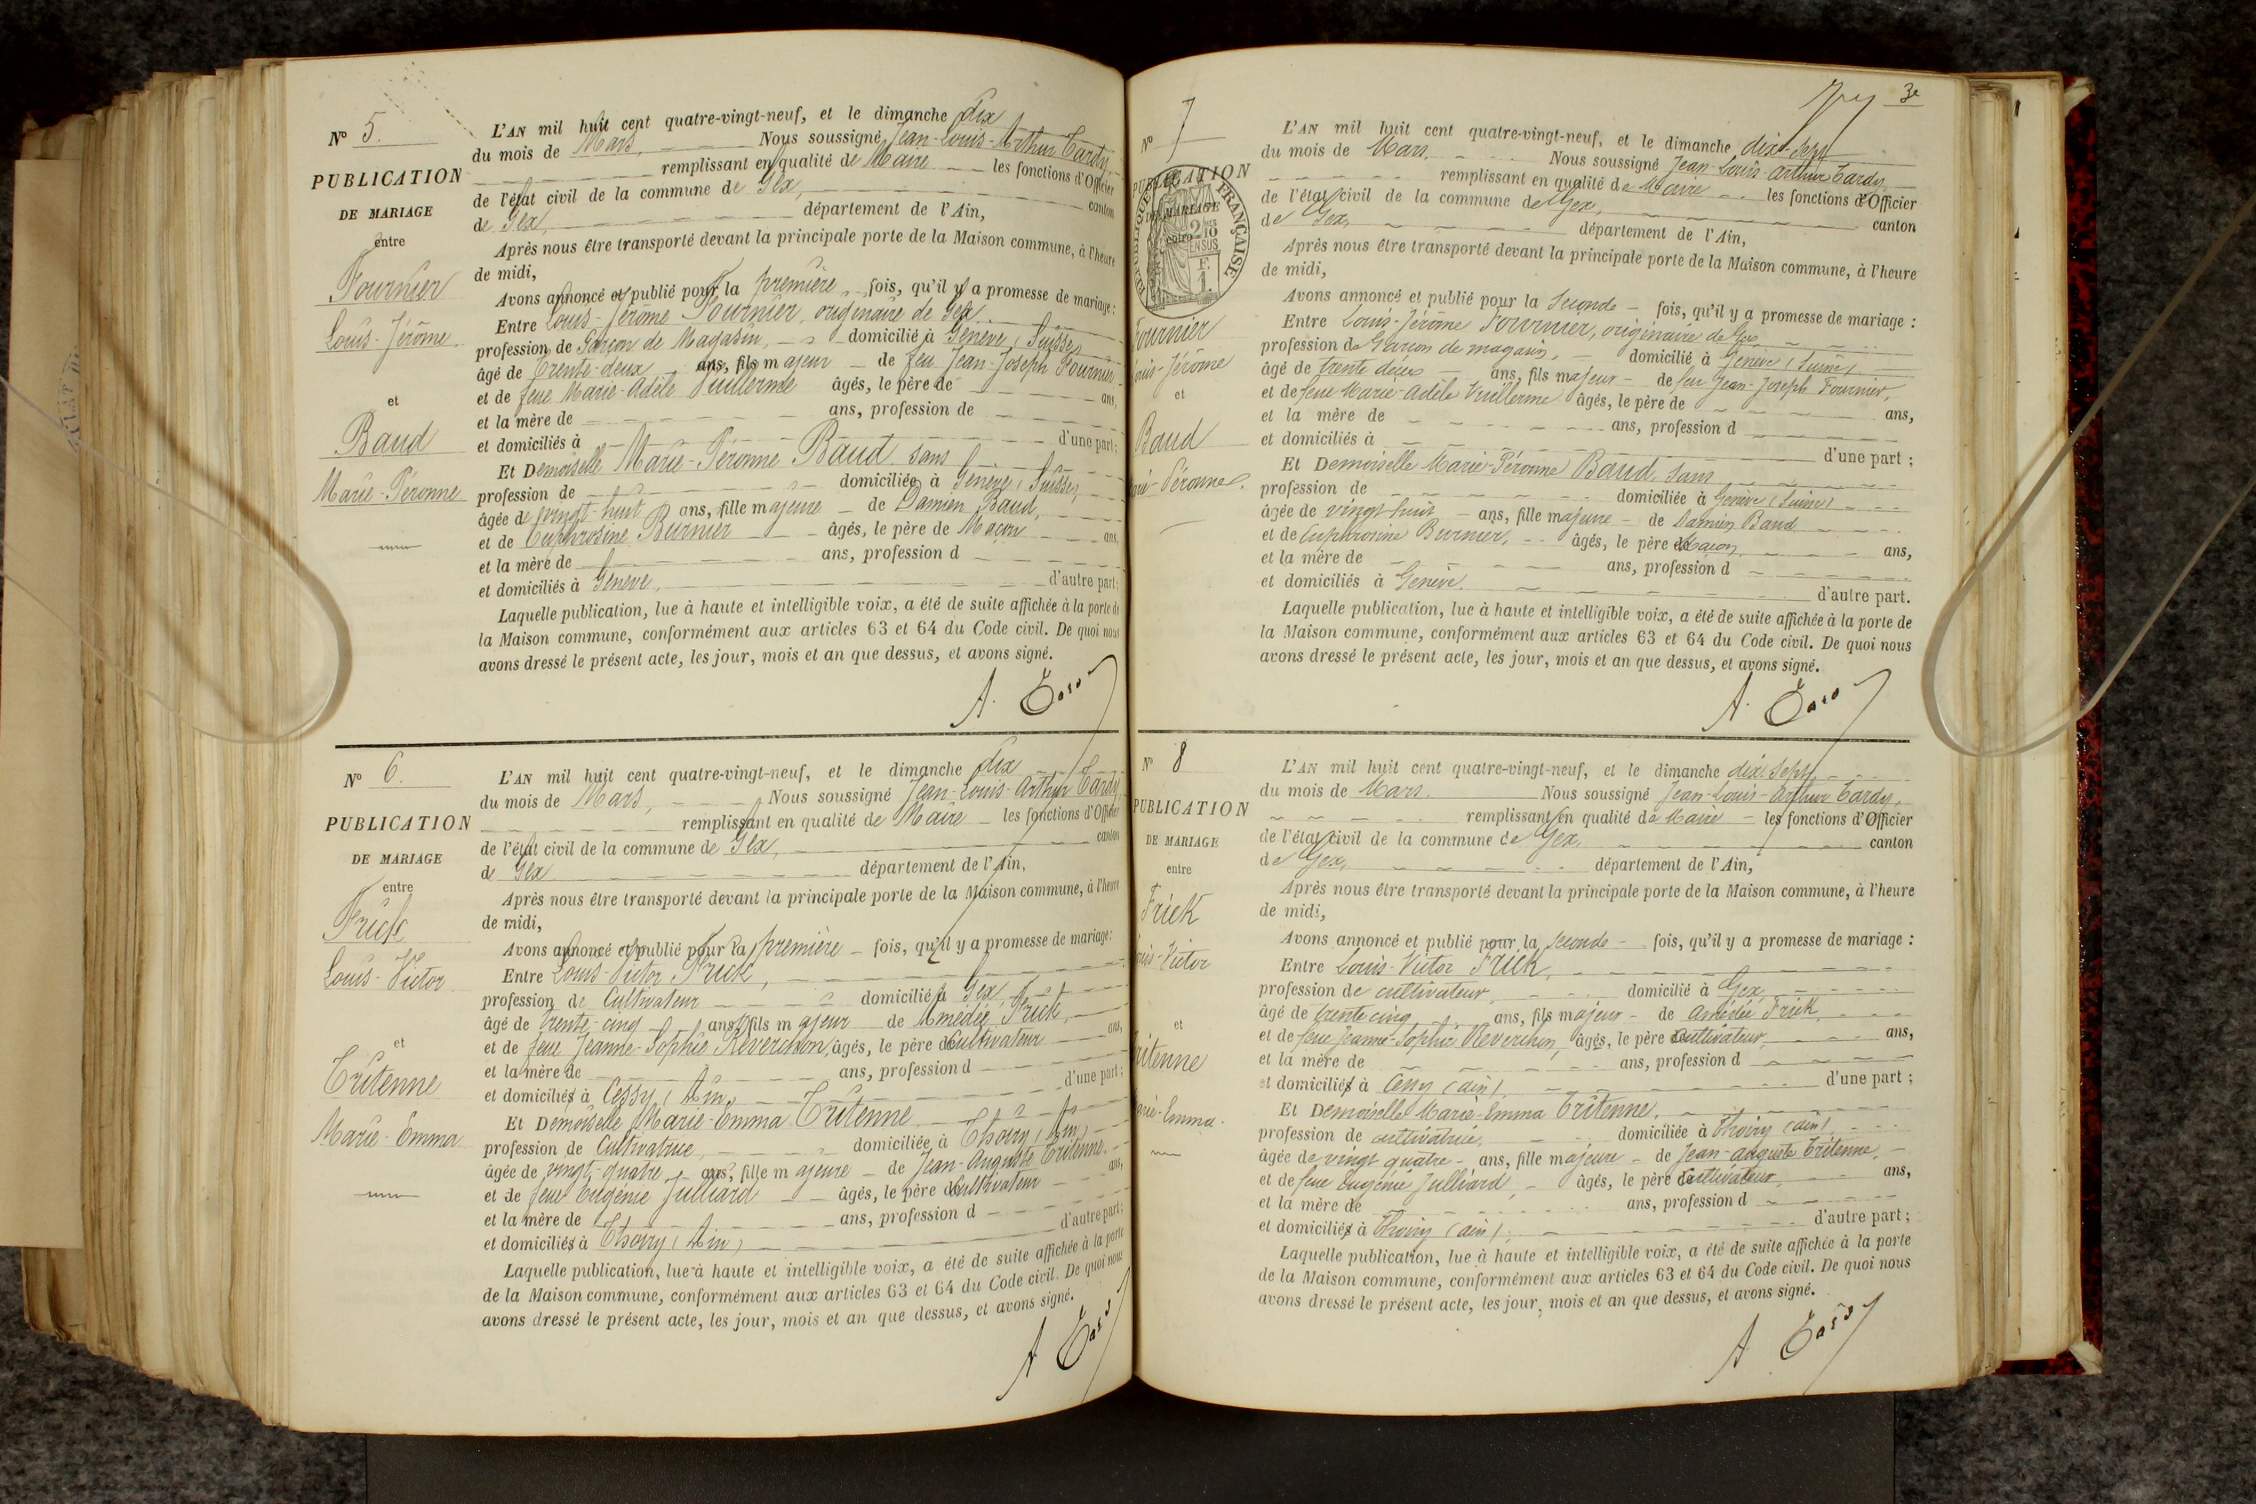 N° 5.
PUBLICATION
DE MARIAGE
entre
Fournier
Louis-Jérôme
et
Baud
Marie-Péronne
L'AN mil huit cent quatre-vingt-neuf, et le dimanche dix
du mois de Mars, Nous soussigné Jean-Louis-Arthur Tardy,
remplissant en qualité de Maire les fonctions d'Officier
de l'état civil de la commune de Gex, canton
de Gex, département de l'Ain,
Après nous être transporté devant la principale porte de la Maison commune, à l'heure
de midi,
Avons annoncé et publié pour la première fois, qu'il y a promesse de mariage :
Entre Louis-Jérôme Fournier, originaire de Gex
profession de Garçon de Magasin, domicilié à Genève (Suisse)
âgé de trente-deux ans, fils majeur de feu Jean-Joseph Fournier
et de feue Marie-Adèle Vuillerme âgés, le père de ans,
et la mère de ans, profession de
et domiciliés à d'une part ;
Et Demoiselle Marie-Péronne Baud sans
profession de domiciliée à Genève (Suisse),
âgée de vingt-huit ans, fille majeure de Damien Baud,
et de Euphrosine Burnier âgés, le père de Maçon ans,
et la mère de ans, profession d
et domiciliés à Genève, d'autre part ;
Laquelle publication, lue à haute et intelligible voix, a été de suite affichée à la porte de
la Maison commune, conformément aux articles 63 et 64 du Code civil. De quoi nous
avons dressé le présent acte, les jour, mois et an que dessus, et avons signé.
A. Tardy
N° 6.
PUBLICATION
DE MARIAGE
entre
Frick
Louis-Victor
et
Tritenne
Marie-Emma
L'AN mil huit cent quatre-vingt-neuf, et le dimanche dix
du mois de Mars, Nous soussigné Jean-Louis-Arthur Tardy,
remplissant en qualité de Maire les fonctions d'Officier
de l'état civil de la commune de Gex, canton
de Gex département de l'Ain,
Après nous être transporté devant la principale porte de la Maison commune, à l'heure
de midi,
Avons annoncé et publié pour la première fois, qu'il y a promesse de mariage :
Entre Louis-Victor Frick,
profession de Cultivateur domicilié à Gex,
âgé de trente-cinq ans, fils majeur de Amédée Frick,
et de feue Jeanne-Sophie Reverchon, âgés, le père Cultivateur ans,
et la mère de ans, profession d
et domiciliés à Cessy (Ain) d'une part ;
Et Demoiselle Marie-Emma Tritenne
profession de Cultivatrice, domiciliée à Thoiry (Ain)
âgée de vingt-quatre ans, fille majeure de Jean-Auguste Tritenne
et de feue Eugénie Julliard âgés, le père Cultivateur ans,
et la mère de ans, profession d
et domiciliés à Thoiry (Ain) d'autre part ;
Laquelle publication, lue à haute et intelligible voix, a été de suite affichée à la porte
de la Maison commune, conformément aux articles 63 et 64 du Code civil. De quoi nous
avons dressé le présent acte, les jour, mois et an que dessus, et avons signé.
A Tardy
3e
N° 7
PUBLICATION
DE MARIAGE
entre
RÉPUBLIQUE FRANÇAISE
Fournier
Louis-Jérôme
et
Baud
Marie-Péronne.
L'AN mil huit cent quatre-vingt-neuf, et le dimanche dix-sept
du mois de Mars. Nous soussigné Jean-Louis-Arthur Tardy,
remplissant en qualité de Maire les fonctions d'Officier
de l'état civil de la commune de Gex, canton
de Gex, département de l'Ain,
Après nous être transporté devant la principale porte de la Maison commune, à l'heure
de midi,
Avons annoncé et publié pour la Seconde fois, qu'il y a promesse de mariage :
Entre Louis-Jérôme Fournier, originaire de Gex,
profession de Garçon de magasin, domicilié à Genève (Suisse)
âgé de trente deux ans, fils majeur de feu Jean-Joseph Fournier,
et de feue Marie-Adèle Vuillerme âgés, le père de ans,
et la mère de ans, profession d
et domiciliés à d'une part ;
Et Demoiselle Marie-Péronne Baud, sans
profession de domiciliée à Genève (Suisse)
âgée de vingt huit ans, fille majeure de Damien Baud
et de Euphrosine Burnier, âgés, le père Maçon ans,
et la mère de ans, profession d
et domiciliés à Genève. d'autre part.
Laquelle publication, lue à haute et intelligible voix, a été de suite affichée à la porte de
la Maison commune, conformément aux articles 63 et 64 du Code civil. De quoi nous
avons dressé le présent acte, les jour, mois et an que dessus, et avons signé.
A. Tardy
N° 8
PUBLICATION
DE MARIAGE
entre
Frick
Louis-Victor
et
Tritenne
Marie-Emma.
L'AN mil huit cent quatre-vingt-neuf, et le dimanche dix-sept
du mois de Mars. Nous soussigné Jean-Louis-Arthur Tardy,
remplissant en qualité de Maire les fonctions d'Officier
de l'état civil de la commune de Gex, canton
de Gex, département de l'Ain,
Après nous être transporté devant la principale porte de la Maison commune, à l'heure
de midi,
Avons annoncé et publié pour la seconde fois, qu'il y a promesse de mariage :
Entre Louis-Victor Frick,
profession de cultivateur, domicilié à Gex
âgé de trente cinq ans, fils majeur de Amédée Frick,
et de feue Jeanne-Sophie Reverchon, âgés, le père cultivateur, ans,
et la mère de ans, profession d
et domiciliés à Cessy (Ain), d'une part ;
Et Demoiselle Marie-Emma Tritenne,
profession de cultivatrice, domiciliée à Thoiry (ain),
âgée de vingt quatre ans, fille majeure de Jean-Auguste Tritenne,
et de feue Eugénie Julliard, âgés, le père cultivateur, ans,
et la mère de ans, profession d
et domiciliés à Thoiry (ain), d'autre part ;
Laquelle publication, lue à haute et intelligible voix, a été de suite affichée à la porte
de la Maison commune, conformément aux articles 63 et 64 du Code civil. De quoi nous
avons dressé le présent acte, les jour, mois et an que dessus, et avons signé.
A Tardy